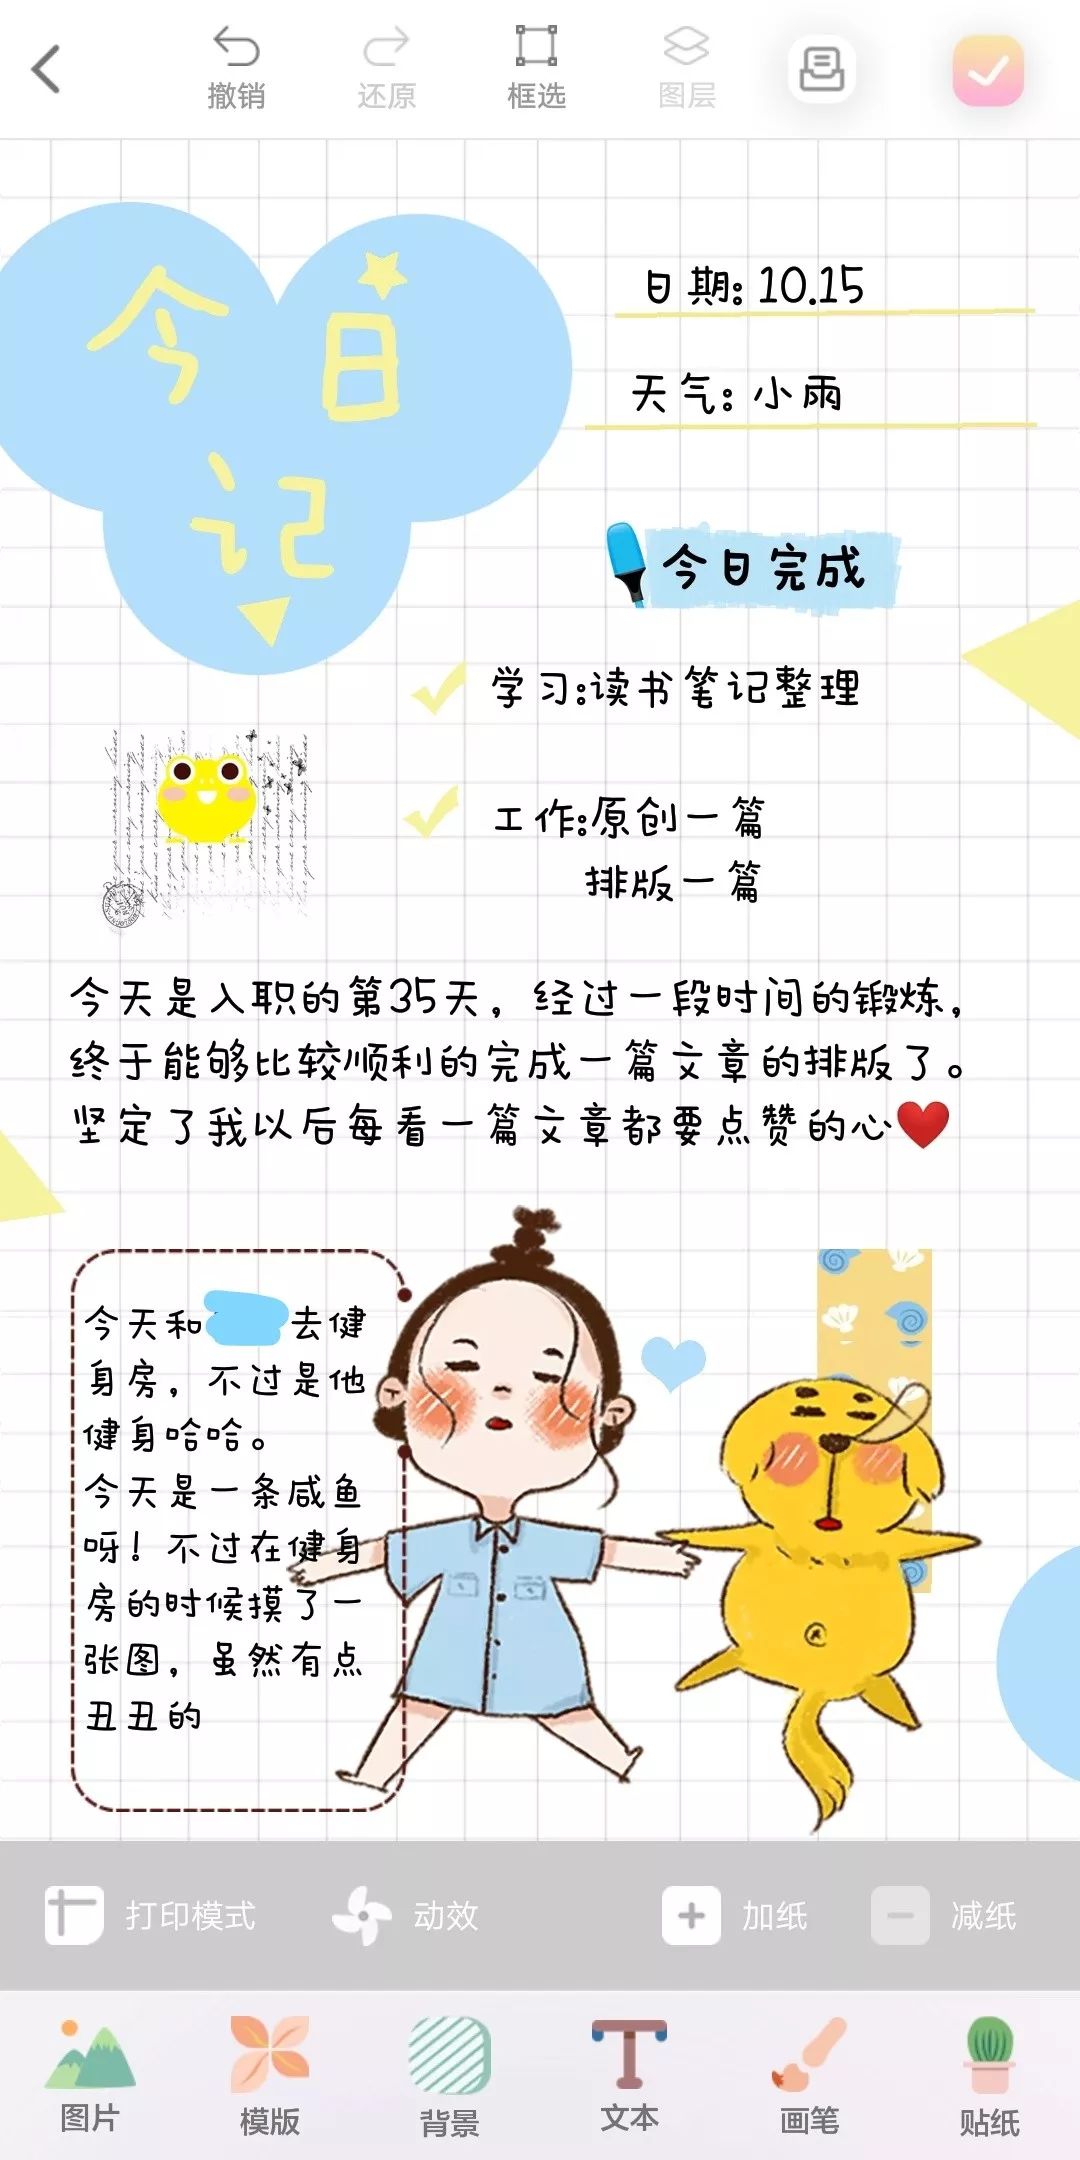 撤销 还原 框选 图层
今日记
日期: 10.15
天气: 小雨
今日完成
学习:读书笔记整理
工作:原创一篇
排版一篇
今天是入职的第35天，经过一段时间的锻炼，
终于能够比较顺利的完成一篇文章的排版了。
坚定了我以后每看一篇文章都要点赞的心❤
今天和 去健
身房，不过是他
健身哈哈。
今天是一条咸鱼
呀！不过在健身
房的时候摸了一
张图，虽然有点
丑丑的
打印模式 动效 加纸 减纸
图片 模版 背景 文本 画笔 贴纸